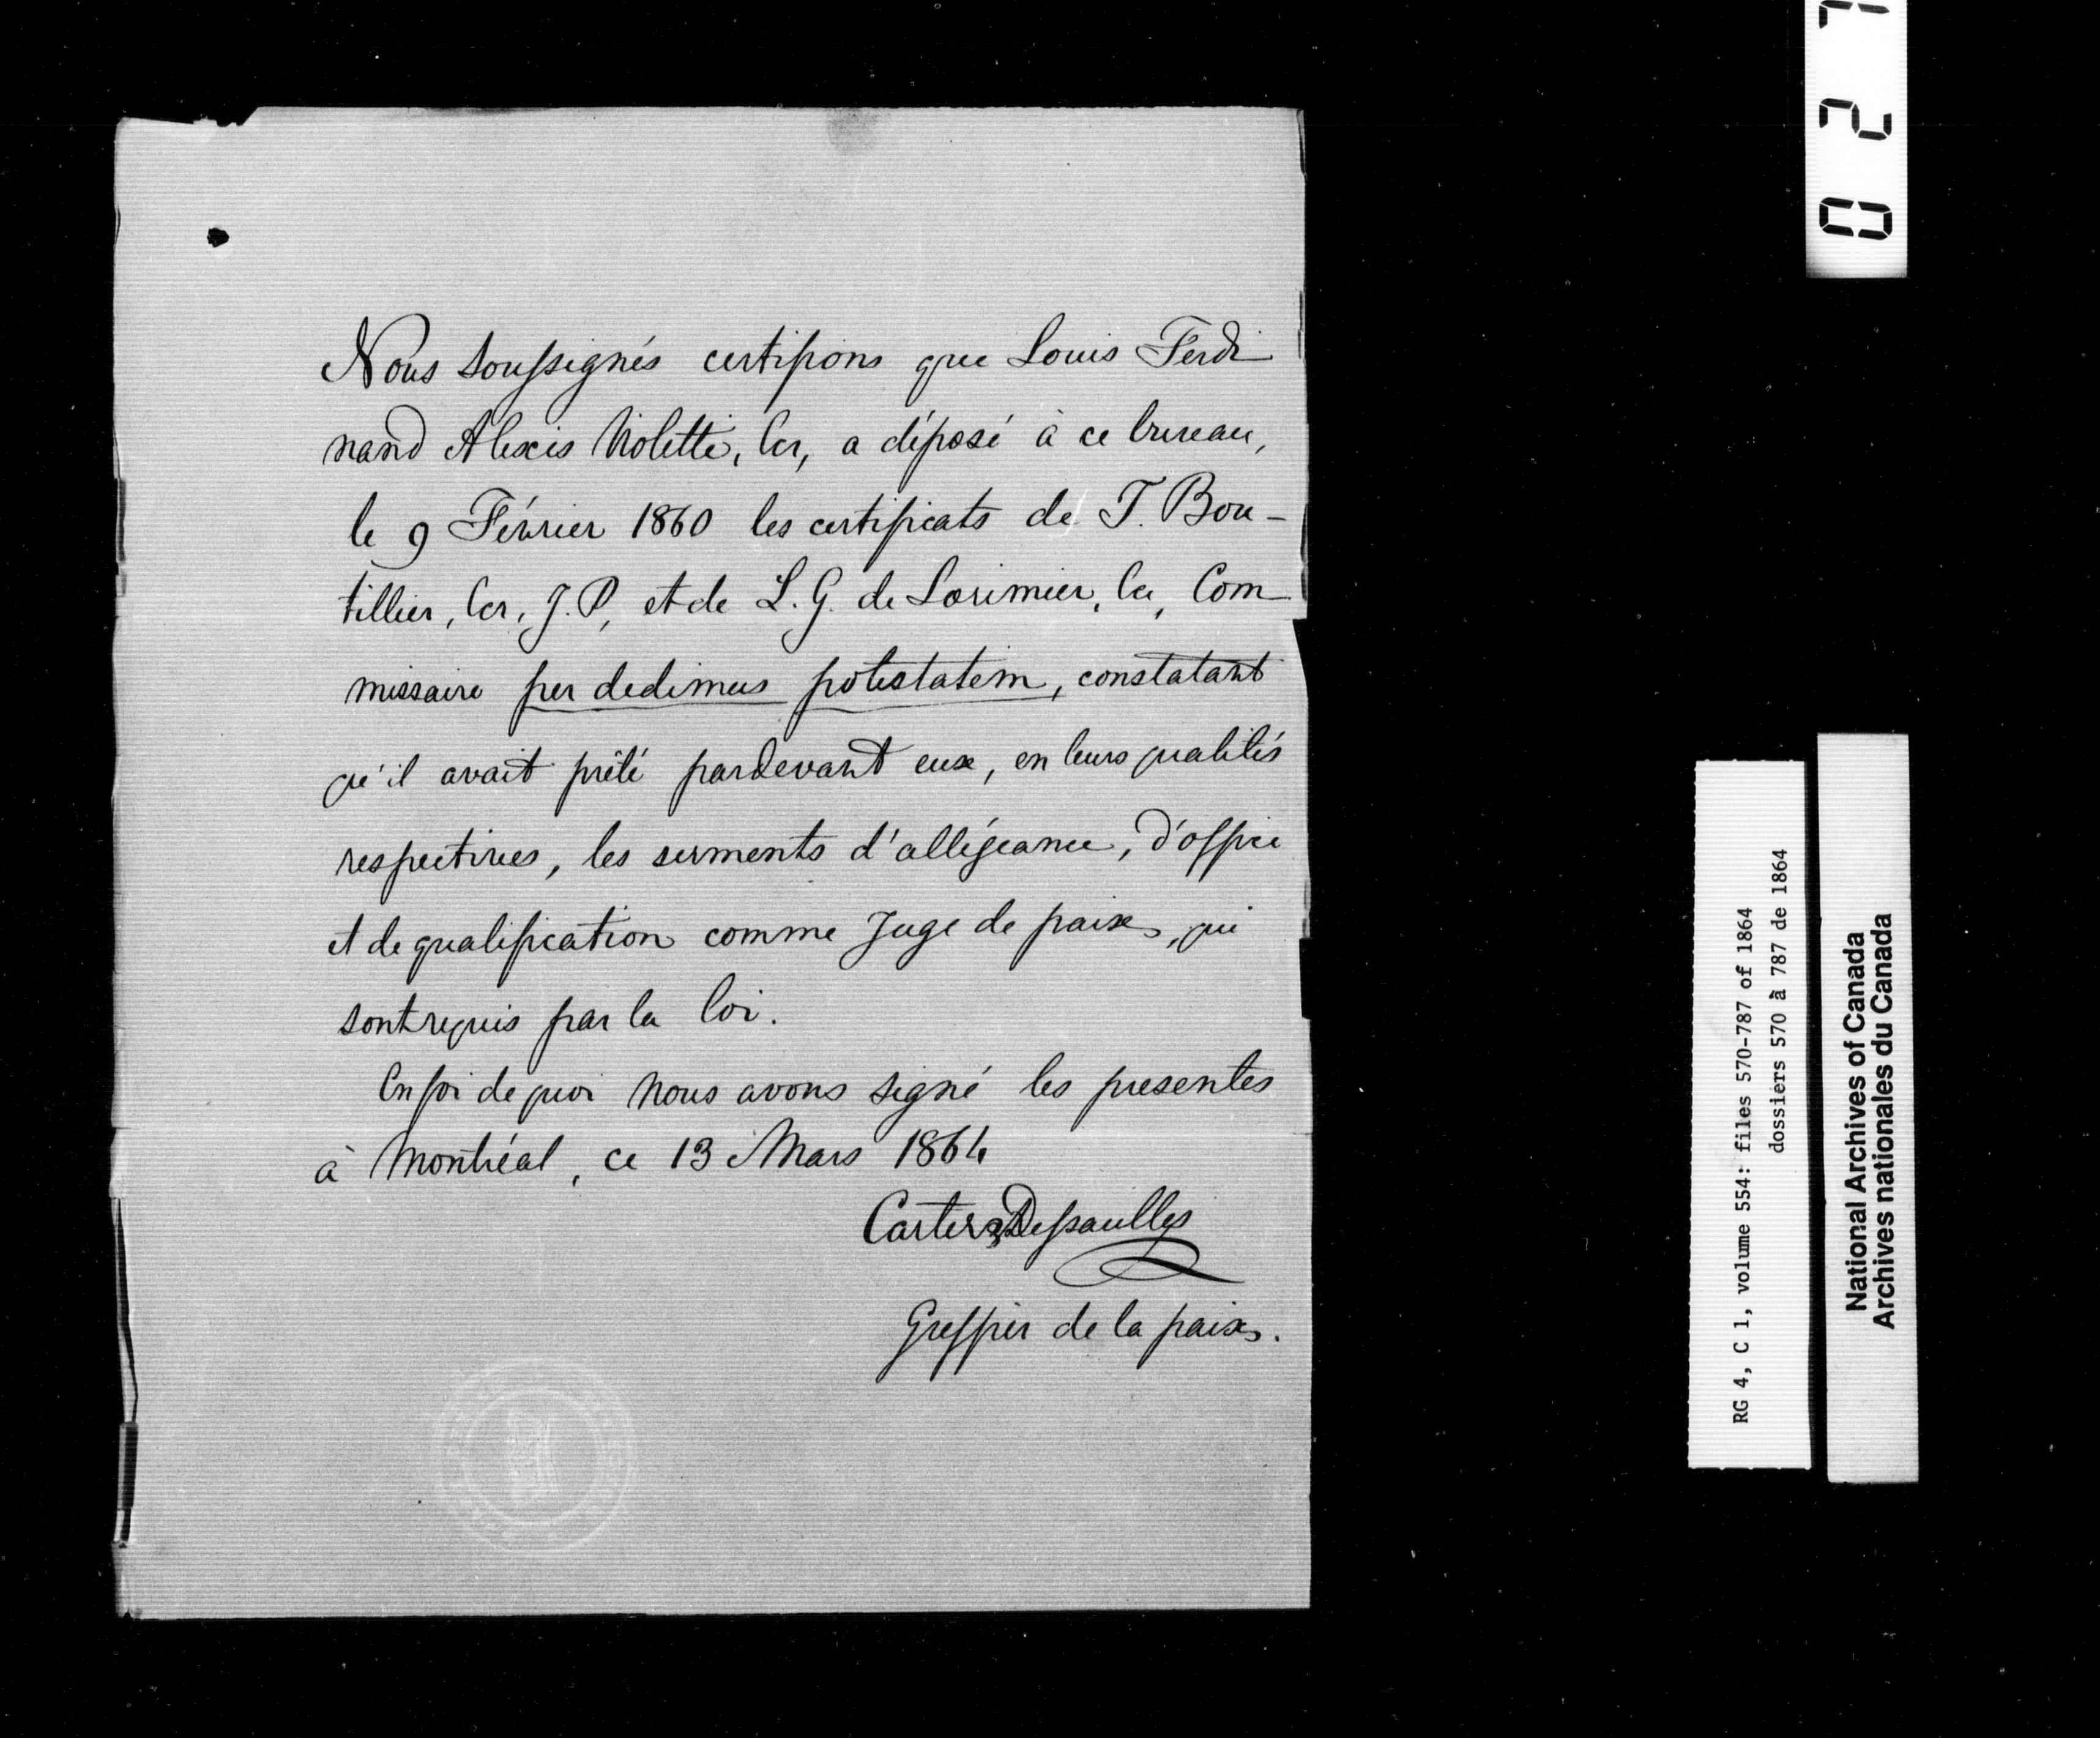 Nous soussignés certifions que Louis Ferdi
nand Alexis Violette, Ecr, a déposé à ce bureau,
le 9 Février 1860 les certificats de T. Bou-
tillier, Ecr, J. P, et de L. G. de Lorimier, Ecr, Com-
missaire per dedimus potestatem, constatant
qu'il avait prêté pardevant eux, en leurs qualités
respectives, les serments d'allégeance, d'office
et de qualification comme Juge de paix, qui
sont requis par la loi.
En foi de quoi nous avons signé les presentes
à Montréal, ce 13 Mars 1864
Carter & Dessaulles
Greffier de la paix.
0 2 7
RG 4, C 1, volume 554: files 570-787 of 1864
dossiers 570 à 787 de 1864
National Archives of Canada
Archives nationales du Canada